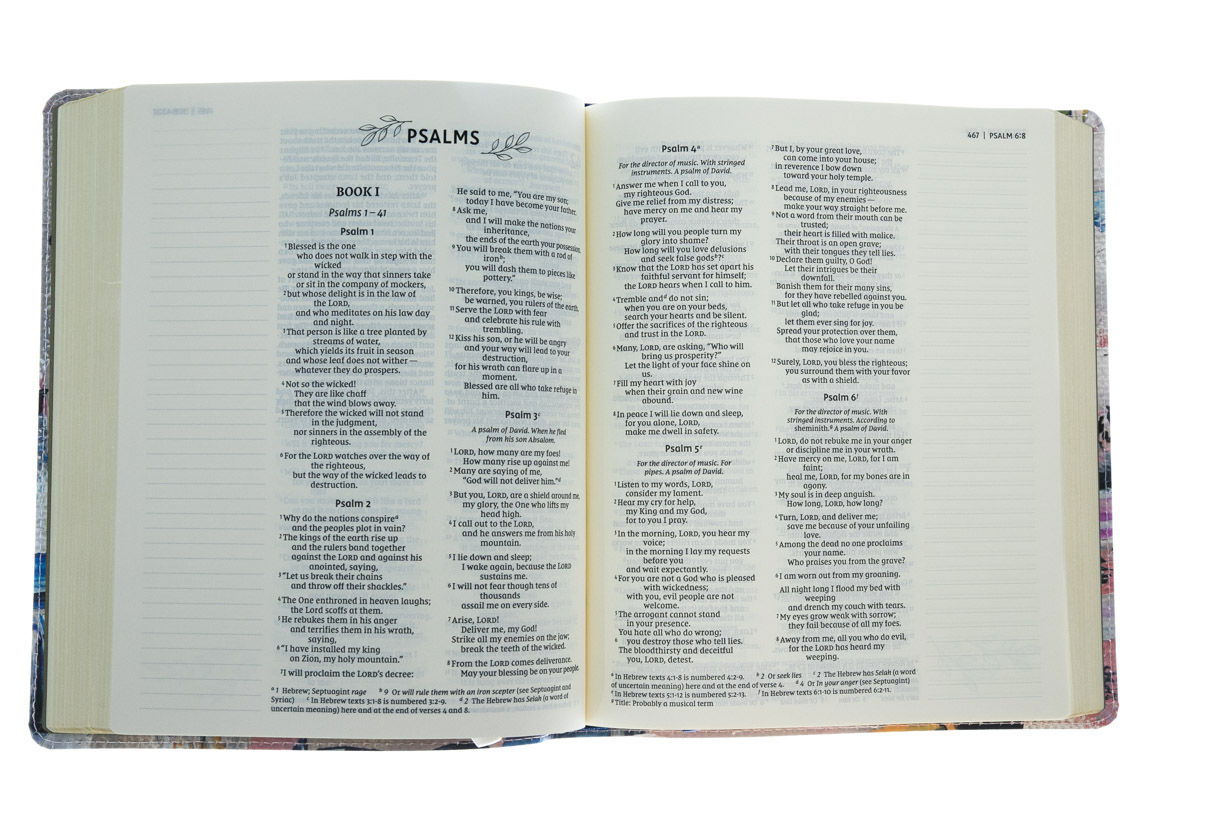 PSALMS
BOOK I
Psalms 1–41
Psalm 1
1Blessed is the one
who does not walk in step with the
wicked
or stand in the way that sinners take
or sit in the company of mockers,
2but whose delight is in the law of
the LORD,
and who meditates on his law day
and night.
3That person is like a tree planted by
streams of water,
which yields its fruit in season
and whose leaf does not wither —
whatever they do prospers.
4Not so the wicked!
They are like chaff
that the wind blows away.
5Therefore the wicked will not stand
in the judgment,
nor sinners in the assembly of the
righteous.
6For the LORD watches over the way of
the righteous,
but the way of the wicked leads to
destruction.
Psalm 2
1Why do the nations conspirea
and the peoples plot in vain?
2The kings of the earth rise up
and the rulers band together
against the LORD and against his
anointed, saying,
3"Let us break their chains
and throw off their shackles."
4The One enthroned in heaven laughs;
the Lord scoffs at them.
5He rebukes them in his anger
and terrifies them in his wrath,
saying,
6"I have installed my king
on Zion, my holy mountain."
7I will proclaim the LORD's decree:
He said to me, "You are my son;
today I have become your father.
8Ask me,
and I will make the nations your
inheritance,
the ends of the earth your possession.
9You will break them with a rod of
ironb;
you will dash them to pieces like
pottery."
10Therefore, you kings, be wise;
be warned, you rulers of the earth.
11Serve the LORD with fear
and celebrate his rule with
trembling.
12Kiss his son, or he will be angry
and your way will lead to your
destruction,
for his wrath can flare up in a
moment.
Blessed are all who take refuge in
him.
Psalm 3c
A psalm of David. When he fled
from his son Absalom.
1LORD, how many are my foes!
How many rise up against me!
2Many are saying of me,
"God will not deliver him."d
3But you, LORD, are a shield around me,
my glory, the One who lifts my
head high.
4I call out to the LORD,
and he answers me from his holy
mountain.
5I lie down and sleep;
I wake again, because the LORD
sustains me.
6I will not fear though tens of
thousands
assail me on every side.
7Arise, LORD!
Deliver me, my God!
Strike all my enemies on the jaw;
break the teeth of the wicked.
8From the LORD comes deliverance.
May your blessing be on your people.
a 1 Hebrew; Septuagint rage b 9 Or will rule them with an iron scepter (see Septuagint and
Syriac) c In Hebrew texts 3:1-8 is numbered 3:2-9. d 2 The Hebrew has Selah (a word of
uncertain meaning) here and at the end of verses 4 and 8.
467 | PSALM 6:8
Psalm 4a
For the director of music. With stringed
instruments. A psalm of David.
1Answer me when I call to you,
my righteous God.
Give me relief from my distress;
have mercy on me and hear my
prayer.
2How long will you people turn my
glory into shame?
How long will you love delusions
and seek false godsb?c
3Know that the LORD has set apart his
faithful servant for himself;
the LORD hears when I call to him.
4Tremble andd do not sin;
when you are on your beds,
search your hearts and be silent.
5Offer the sacrifices of the righteous
and trust in the LORD.
6Many, LORD, are asking, "Who will
bring us prosperity?"
Let the light of your face shine on
us.
7Fill my heart with joy
when their grain and new wine
abound.
8In peace I will lie down and sleep,
for you alone, LORD,
make me dwell in safety.
Psalm 5e
For the director of music. For
pipes. A psalm of David.
1Listen to my words, LORD,
consider my lament.
2Hear my cry for help,
my King and my God,
for to you I pray.
3In the morning, LORD, you hear my
voice;
in the morning I lay my requests
before you
and wait expectantly.
4For you are not a God who is pleased
with wickedness;
with you, evil people are not
welcome.
5The arrogant cannot stand
in your presence.
You hate all who do wrong;
6 you destroy those who tell lies.
The bloodthirsty and deceitful
you, LORD, detest.
7But I, by your great love,
can come into your house;
in reverence I bow down
toward your holy temple.
8Lead me, LORD, in your righteousness
because of my enemies —
make your way straight before me.
9Not a word from their mouth can be
trusted;
their heart is filled with malice.
Their throat is an open grave;
with their tongues they tell lies.
10Declare them guilty, O God!
Let their intrigues be their
downfall.
Banish them for their many sins,
for they have rebelled against you.
11But let all who take refuge in you be
glad;
let them ever sing for joy.
Spread your protection over them,
that those who love your name
may rejoice in you.
12Surely, LORD, you bless the righteous;
you surround them with your favor
as with a shield.
Psalm 6f
For the director of music. With
stringed instruments. According to
sheminith.g A psalm of David.
1LORD, do not rebuke me in your anger
or discipline me in your wrath.
2Have mercy on me, LORD, for I am
faint;
heal me, LORD, for my bones are in
agony.
3My soul is in deep anguish.
How long, LORD, how long?
4Turn, LORD, and deliver me;
save me because of your unfailing
love.
5Among the dead no one proclaims
your name.
Who praises you from the grave?
6I am worn out from my groaning.
All night long I flood my bed with
weeping
and drench my couch with tears.
7My eyes grow weak with sorrow;
they fail because of all my foes.
8Away from me, all you who do evil,
for the LORD has heard my
weeping.
a In Hebrew texts 4:1-8 is numbered 4:2-9. b 2 Or seek lies c 2 The Hebrew has Selah (a word
of uncertain meaning) here and at the end of verse 4. d 4 Or In your anger (see Septuagint)
e In Hebrew texts 5:1-12 is numbered 5:2-13. f In Hebrew texts 6:1-10 is numbered 6:2-11.
g Title: Probably a musical term